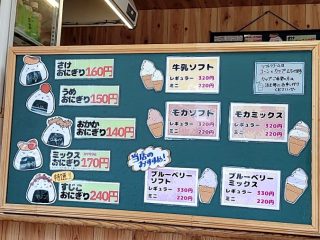 さけ
おにぎり160円
うめ
おにぎり150円
おかか
おにぎり140円
ミックス
おにぎり170円
特選!
すじこ
おにぎり240円
牛乳ソフト
レギュラー 320円
ミニ 220円
モカソフト
レギュラー 320円
ミニ 220円
モカミックス
レギュラー 320円
ミニ 220円
当店の
おすすめ!
ブルーベリー
ソフト
レギュラー 330円
ミニ 220円
ブルーベリー
ミックス
レギュラー 330円
ミニ 220円